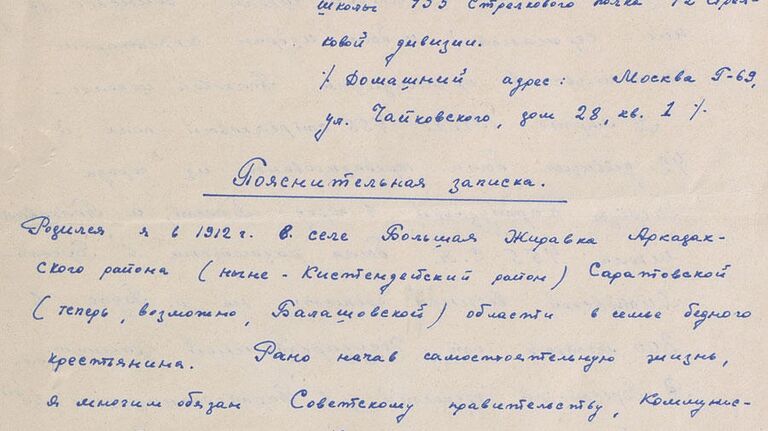 школы 133 Стрелкового полка 72 Стрел-
ковой дивизии.
/. Домашний адрес: Москва Г-69,
ул. Чайковского, дом 28, кв. 1 /.
Пояснительная записка.
Родился я в 1912 г. в селе Большая Журавка Аркадак-
ского района (ныне - Кистендейский район) Саратовской
(теперь, возможно, Балашовской) области в семье бедного
крестьянина. Рано начав самостоятельную жизнь,
я многим обязан Советскому правительству, Коммунис-